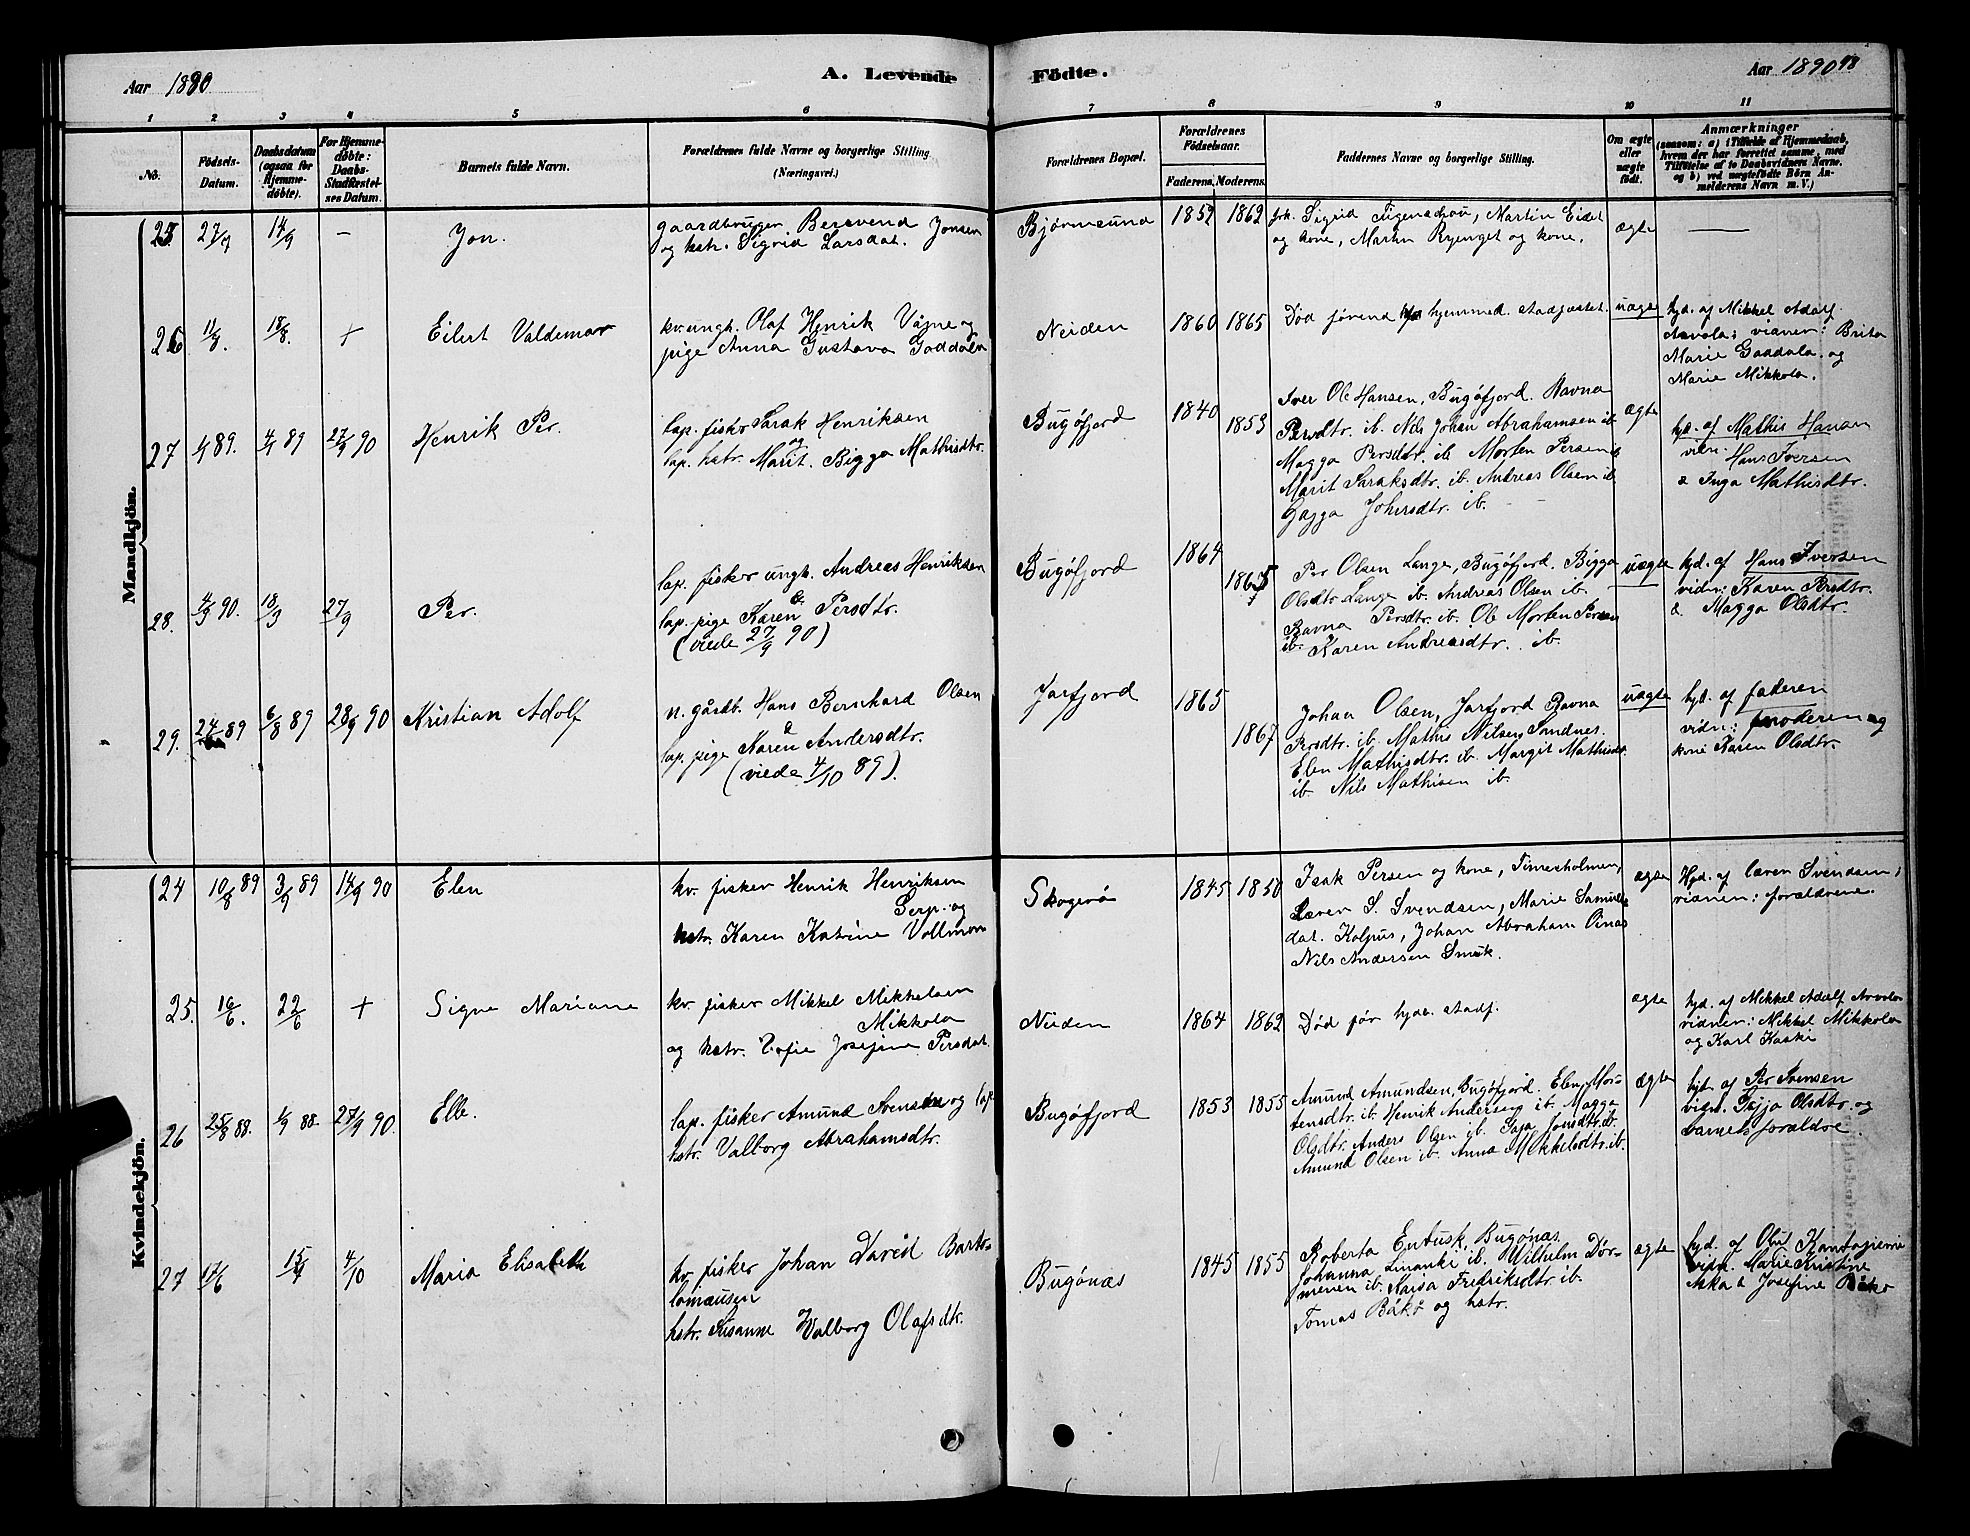 Aar 1890
A. Levende
Födte.
Aar 1890
98
1 2 3 4 5 6 7 8 9 10 11
No.
Födsels-Datum.
Daabsdatum (ogsaa for Hjemme-döbte).
For Hjemme-döbte: Daabs-Stadfæstel-ses Datum.
Barnets fulde Navn.
Forældrenes fulde Navne og borgerlige Stilling (Næringsvei.)
Forældrenes Bopæl.
Forældrenes Födselsaar.
Faderens. Moderens.
Faddernes Navne og borgerlige Stilling.
Om ægte eller uægte födt.
Anmærkninger
(saasom: a) i Tilfælde af Hjemmedaab,
hvem der har forrettet samme, med
Tilföielse af to Daabsvidners Navne,
og b) ved uægtefödte Börn An-
melderens Navn m. V.)
Mandkjön.
25 27/7 14/9 – Jon.
gaardbruger Beravend Jonsen
og hstr. Sigrid Larsdat.
Bjørnsund 1859 1862
Joh. Sigrid Figenschou, Martin Eidet
og kone, Martin Ryenget og kone.
ægte —
26 11/8. 18/8. + Eilert Valdemar
kv. ungk. Olaf Henrik Vajne og
pige Anna Gustava Gaddala
Neiden 1860 1865
Død førend hjemmed. stadfæstet.
uægte
hjd. af Mikkel Adolf
Arvola: vidner: Brita
Marie Gaddala og
Marie Mikkola.
27 89. 89 27/9 90 Henrik Per.
lap. fisker Sarak Henriksen
og
lap. hstr. Marit Bigga Mathisdtr.
Bugøfjord 1840 1853
Iver Ole Hansen, Bugøfjord. Ravna
Persdtr. ib. Nils Johan Abrahamsen ib.
Magga Persdtr. ib. Morten Persen ib
Marit Saraksdtr. ib. Andreas Olsen ib.
Gagga Johnsdtr. ib.
ægte
hjd. af Mathis Hansen
vidn: Hans Iversen
& Inga Mathisdtr.
28. 4/3 90. 18/3 27/9 Per.
lap. fisker ungk. Andreas Henriksen
&
lap. pige Karen Persdtr.
(viede 27/9 90)
Bugøfjord 1864 1865
Per Olsen Lange, Bugøfjord, Bigga
Olsdtr Lange ib. Andreas Olsen ib.
Ravna Persdtr. ib. Ole Morten Persen
ib. Karen Andreasdtr. ib.
uægte
hjd. af Hans Iversen
vidn: Karen Persdtr.
& Magga Olsdtr.
29. 24/ 89 6/8 89 28/9 90 Kristian Adolf
n. gårdb. Hans Bernhard Olsen
&
lap. pige Karen Andersdtr.
(viede 4/10 89).
Jarfjord 1865 1867
Johan Olsen, Jarfjord Ravna
Persdtr. ib. Mathis Nilsen, Sandnes.
Elen Mathisdtr. ib. Margit Mathisdtr.
ib. Nils Mathisen ib.
uægte
hjd. af faderen
vidn: moderen og
kone Karen Olsdtr.
Kvindekjön.
24 10/8 89 3/9 89 14/9 90 Elen
kv. fisker Henrik Henriksen
Serp. og
hstr. Karen Katrine Vollman
Skogerø 1845 1850
Isak Persen og kone, Tinnesholmen,
Laren S. Svendsen, Marie Samuels
dat. Kolpus, Johan Abraham Oinas
Nils Andersen Smuk.
ægte
Hjd. af Laren Svendsen;
vidner: forældrene.
25. 16/6. 22/6 + Signe Mariane
kv. fisker Mikkel Mikkelsen
Mikkola
og hstr. Sofie Josefine Persdat.
Neiden 1864 1862
Død før hjd. stadf.
ægte
hjd. af Mikkel Adolf Arvola
vidner: Mikkel Mikkola
og Karl Kaski
26 25/8 88. 1/9 88. 27/9 90. Elle.
lap. fisker Amund Svensen og lap.
hstr. Valborg Abrahamsdtr.
Bugøfjord 1853 1855
Amund Amundsen, Bugøfjord. Elen Mor-
tensdtr. ib. Henrik Andersen ib. Magga
Olsdtr. Anders Olsen ib. Saga Jonsdtr. ib.
Amund Olsen ib. Anna Mikkelsdtr. ib.
ægte
hjd. af Per Svensen
vidn. Gagga Olsdtr. og
barnets forældre.
27 17/6 15/7 4/10 Maria Elisabeth
kv. fisker Johan David Barto-
lomausen
hstr. Susanne Valborg Olafsdtr.
Bugønæs 1845 1855
Roberta Entusk, Bugønæs.
Johanna Linanki ib. Wilhelm Dør-
menen ib. Kaisa Fredriksdtr. ib.
Tomas Båkø og hstr.
ægte
hjd. af Oluf Kantagienni
vidn. Marie Kristine
Aska & Josefine Båkø